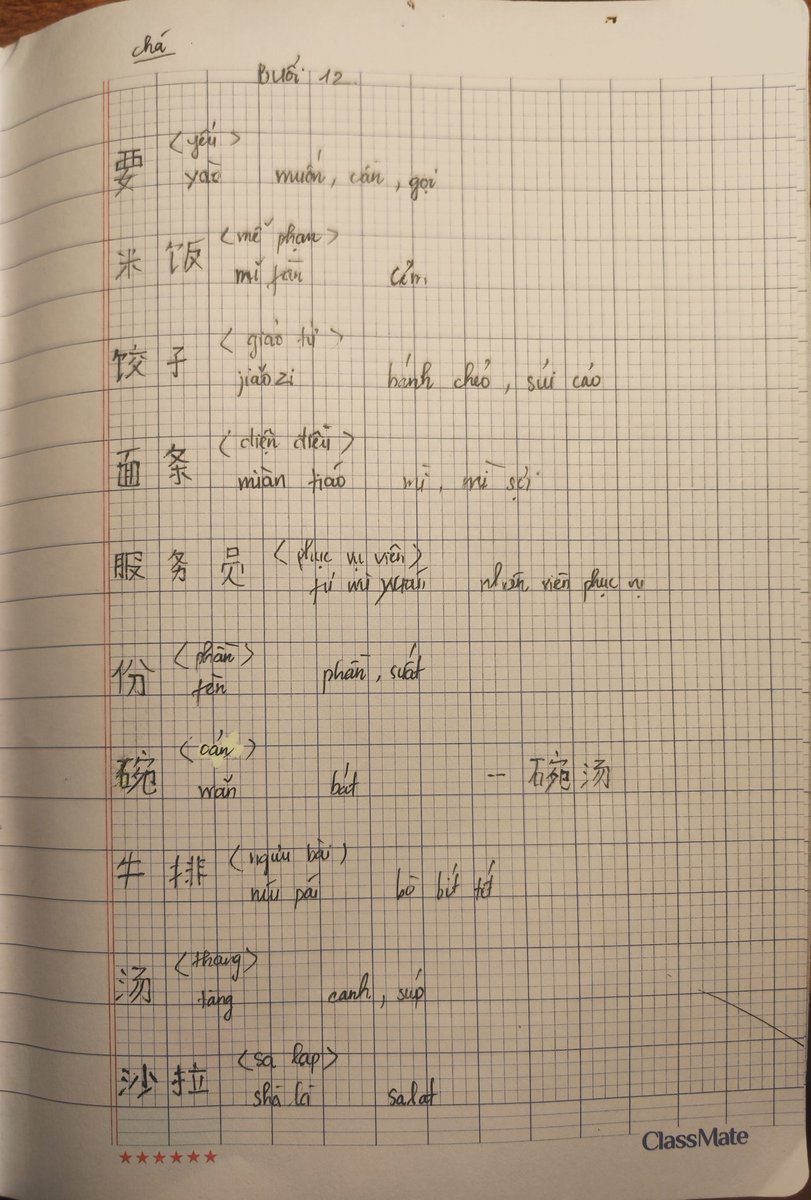 chá
Buổi 12
(yếu)
要 yào muốn, cần, gọi
(mễ phạn)
米饭 mǐ fàn cơm
(giáo tử)
饺子 jiǎozi bánh chẻo, sủi cảo
(diện điều)
面条 miàn tiáo mì, mì sợi
(phục vụ viên)
服务员 fú wù yuán nhân viên phục vụ
(phần)
份 fèn phần, suất
(oản)
碗 wǎn bát 一碗汤
(ngưu bài)
牛排 niú pái bò bít tết
(thang)
汤 tāng canh, súp
(sa lạp)
沙拉 shā lā salat
ClassMate